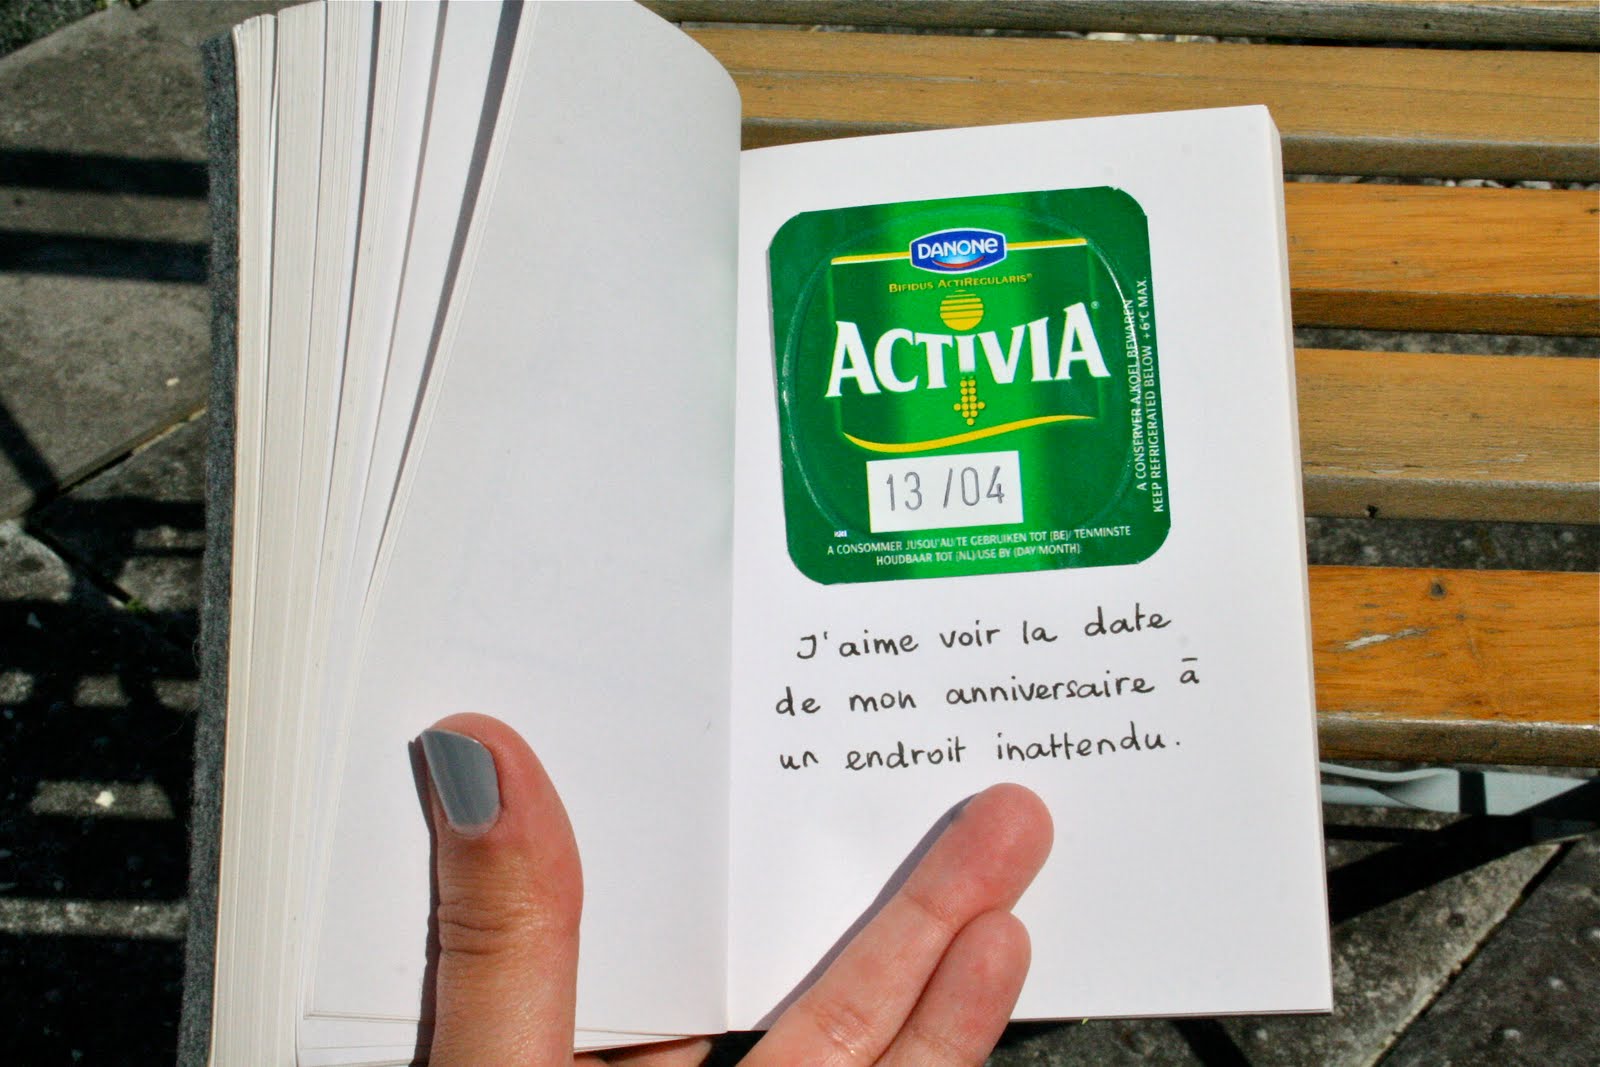 DANONE
BIFIDUS ACTIREGULARIS®
ACTIVIA®
13 /04
A CONSOMMER JUSQU'AU/TE GEBRUIKEN TOT (BE)/ TENMINSTE
HOUDBAAR TOT (NL)/USE BY (DAY/MONTH)
A CONSERVER A/KOEL BEWAREN
KEEP REFRIGERATED BELOW +6°C MAX.
J'aime voir la date
de mon anniversaire ā
un endroit inattendu.